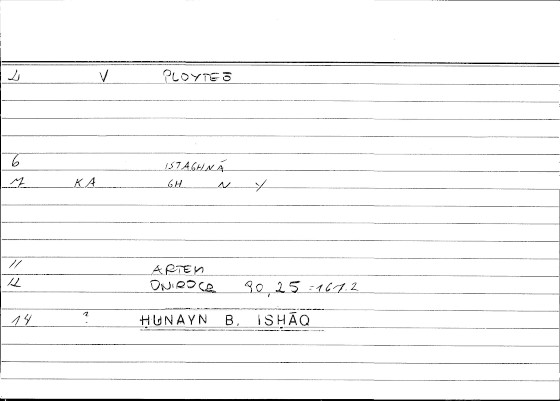 V PLOYTEŌ
6 ISTAGHNĀ
KA GH N Y
11 ARTEM
12 ONIROCR 90,25 =161.2
14 ? ḤUNAYN B. ISḤĀQ